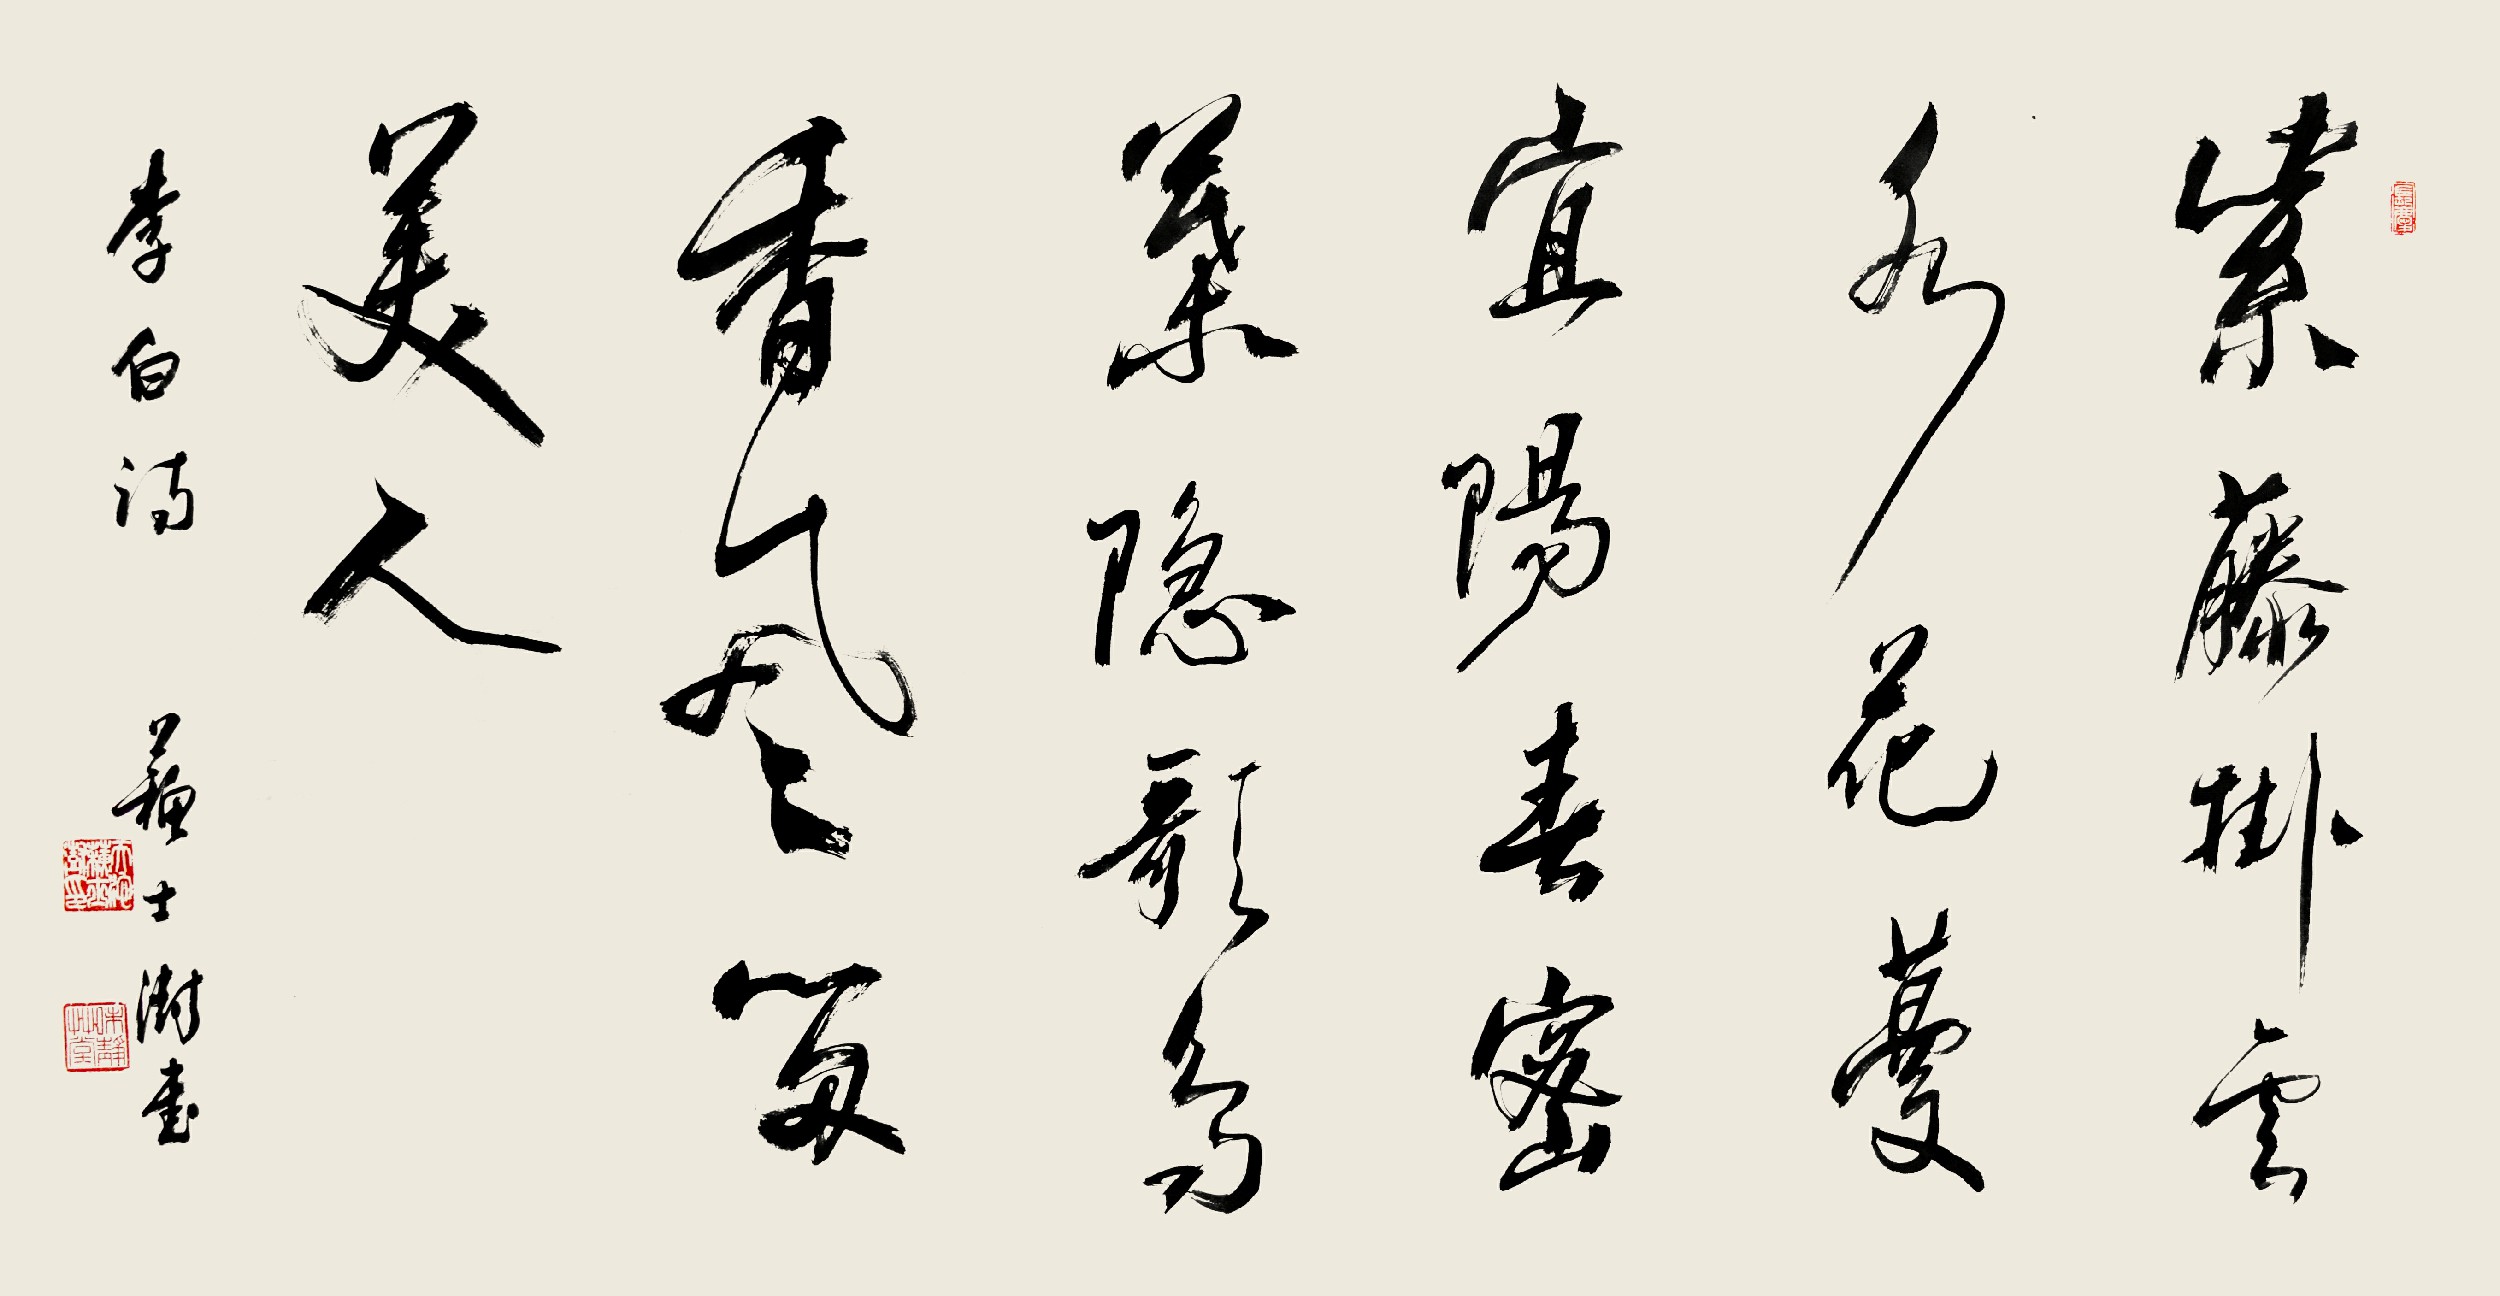 紫藤掛雲
木花蔓
宜陽春密
葉隱歌鳥
香風留
美人
李白詩 蘇士澍書